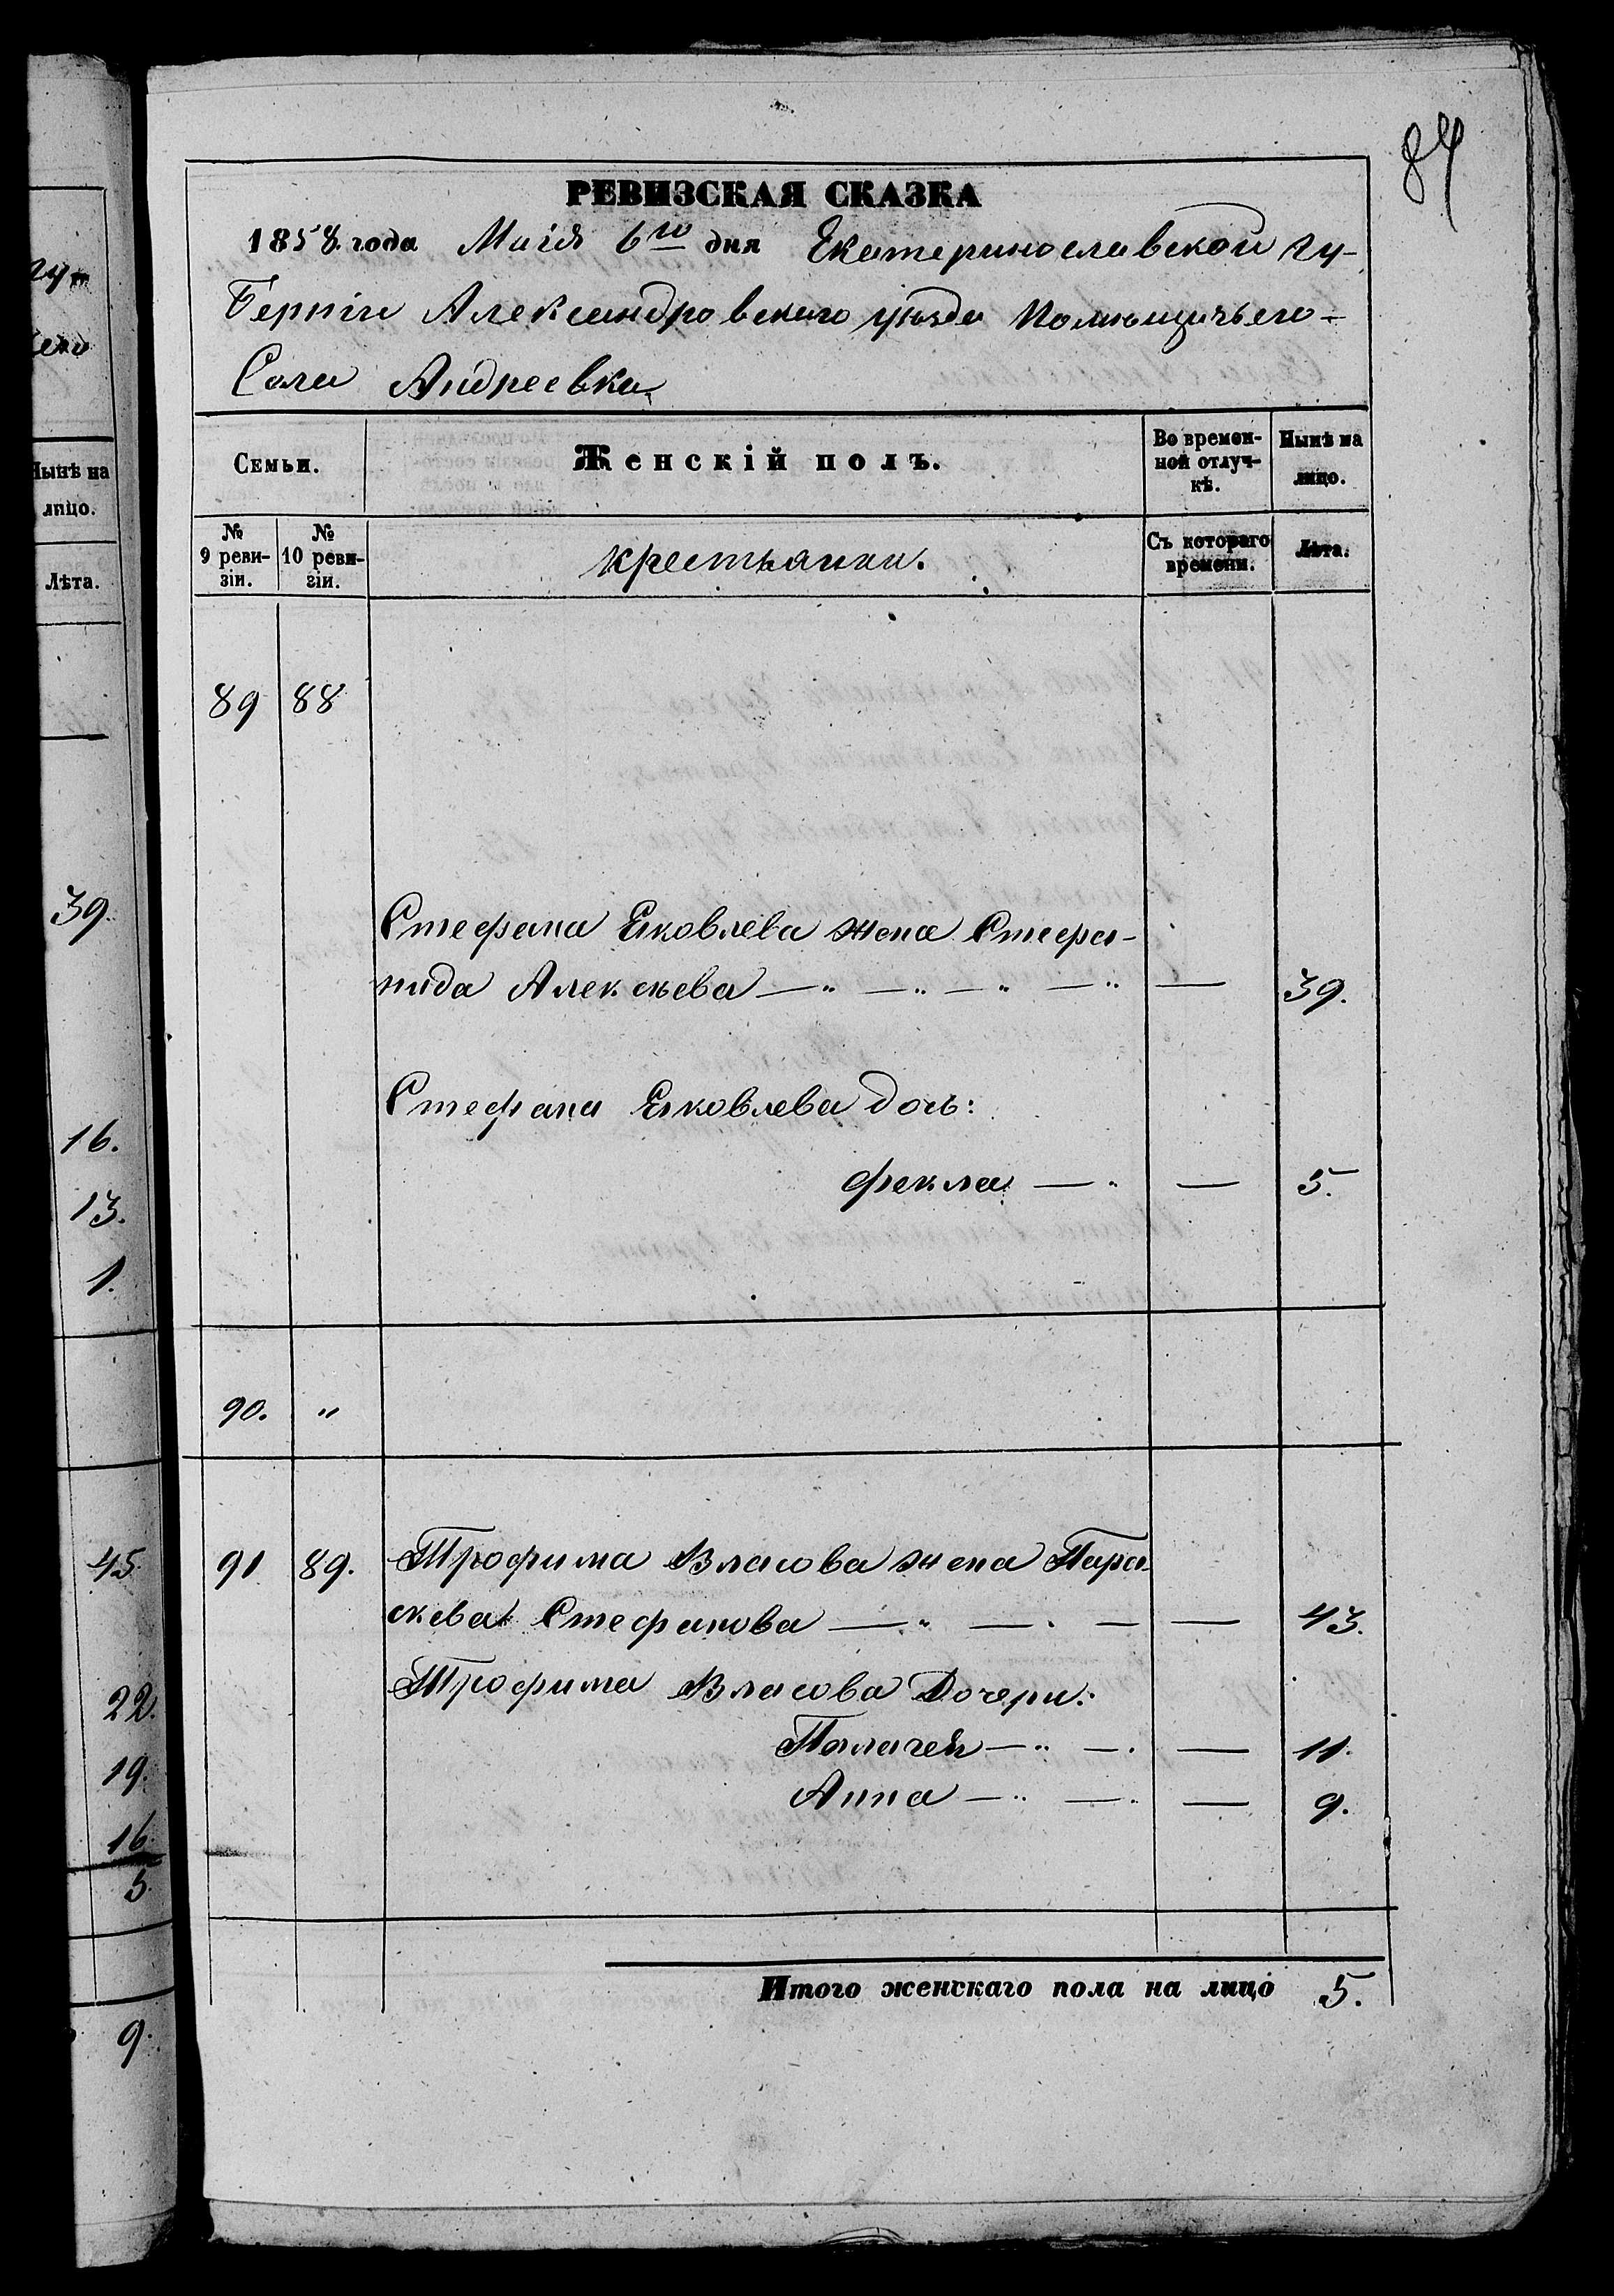 84
РЕВИЗСКАЯ СКАЗКА
1858 года Маія 6го дня Екатеринославской гу-
берніи Александровскаго уѣзда помѣщичьего
Села Андреевки
Семьи.
Женскій полъ.
Во времен-
ной отлуч-
кѣ.
Нынѣ на
лицо.
№
9 реви-
зіи.
№
10 реви-
зіи.
крестьянки.
Съ котораго
времени.
Лѣта.
89 88
Стефана Яковлева жена Стефа-
нида Алексѣева — " — " — " — " — 39.
Стефана Яковлева дочь:
Фекла — " — 5.
90. "
91 89. Трофима Власова жена Пара-
скева Стефанова — " — . — — 43.
Трофима Власова Дочери:
Палагея — " — . — 11.
Анна — " — . — 9.
Итого женскаго пола на лицо 5.
Нынѣ на
лицо.
Лѣта.
39.
16.
13.
1.
45.
22.
19.
16
5.
9.